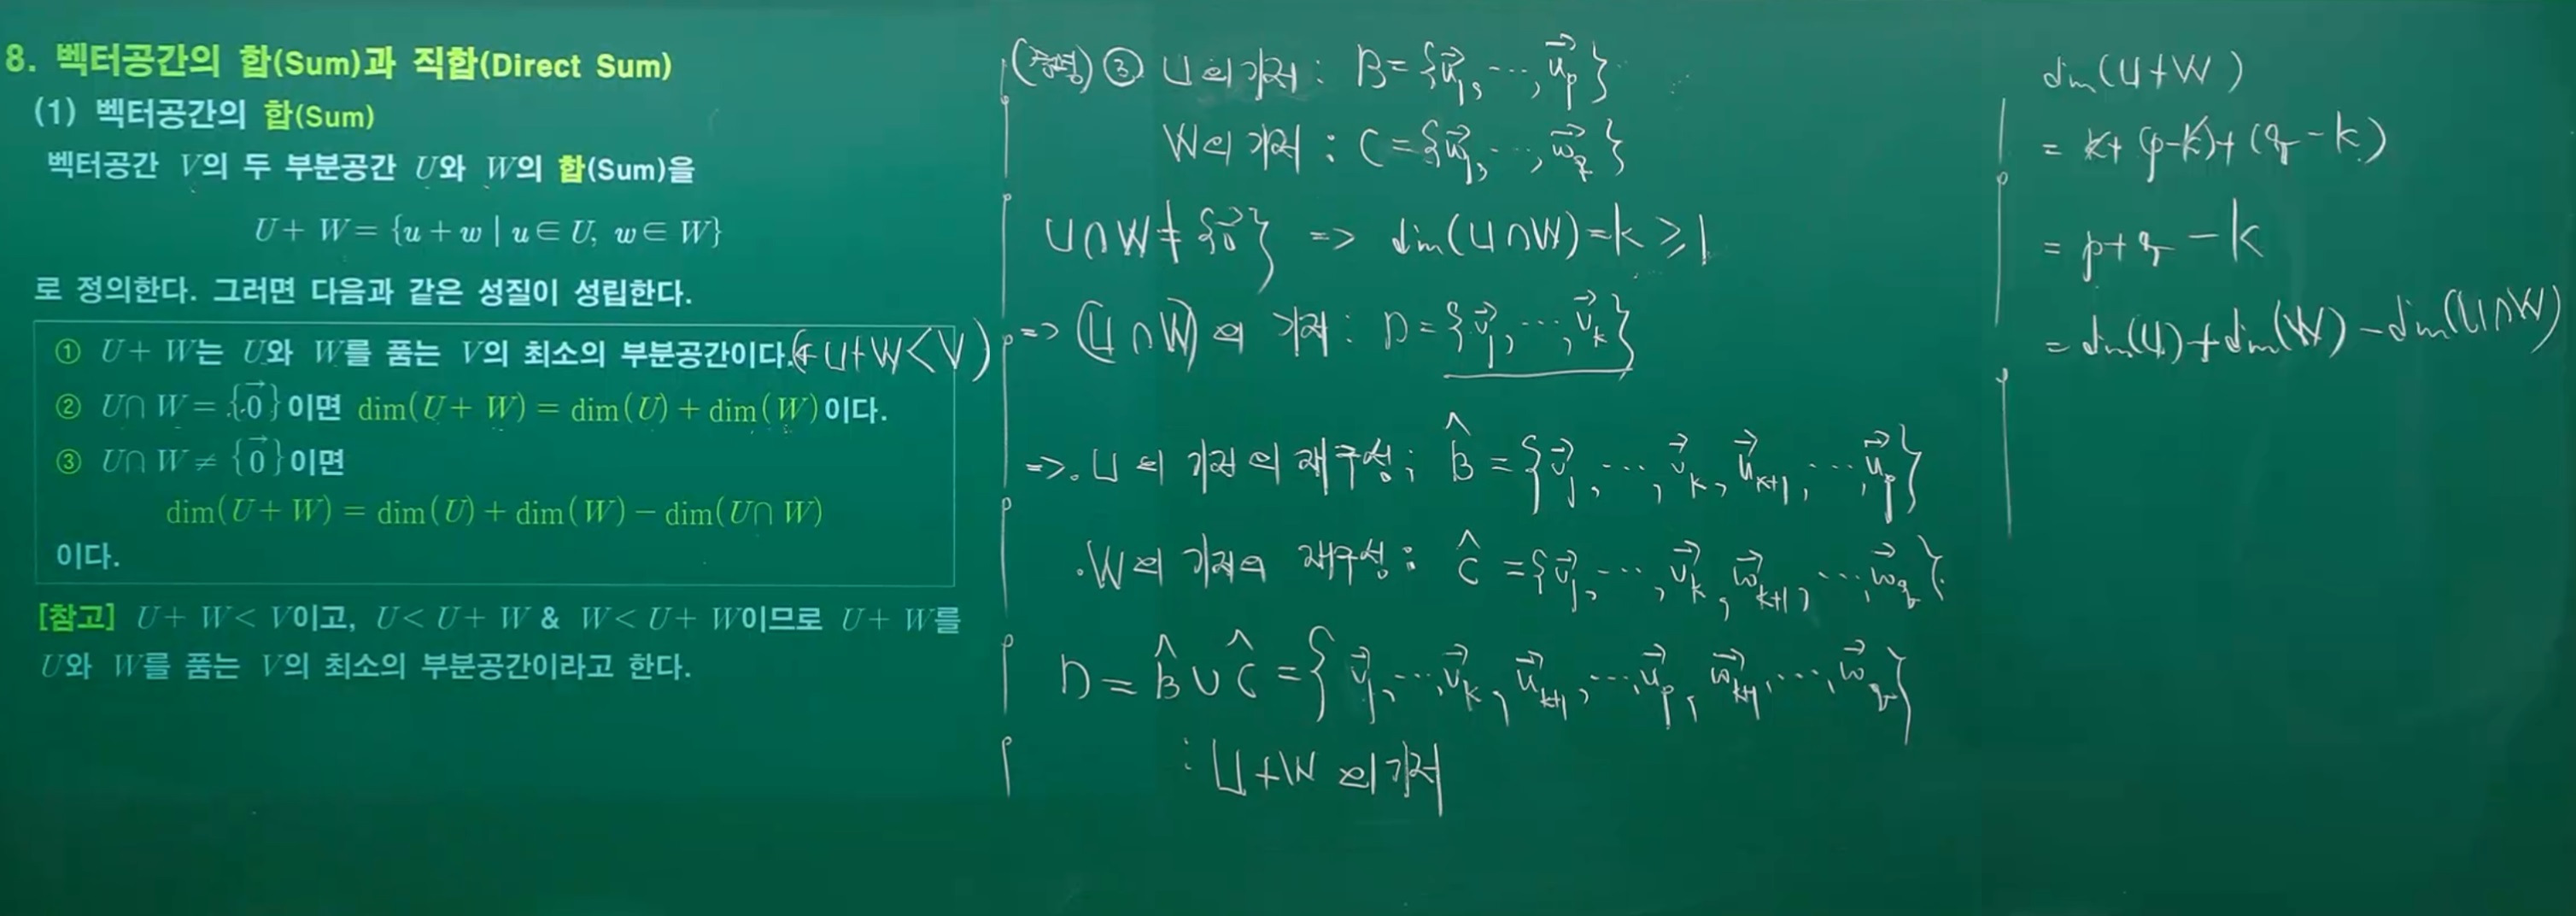 8. 벡터공간의 합(Sum)과 직합(Direct Sum)
(1) 벡터공간의 합(Sum)
벡터공간 V의 두 부분공간 U와 W의 합(Sum)을
U + W = {u + w | u ∈ U, w ∈ W}
로 정의한다. 그러면 다음과 같은 성질이 성립한다.
① U + W는 U와 W를 품는 V의 최소의 부분공간이다. (← U+W < V)
② U∩W = {0⃗}이면 dim(U + W) = dim(U) + dim(W)이다.
③ U∩W ≠ {0⃗}이면
dim(U + W) = dim(U) + dim(W) − dim(U∩W)
이다.
[참고] U + W < V이고, U < U + W & W < U + W이므로 U + W를
U와 W를 품는 V의 최소의 부분공간이라고 한다.
(증명) ③ U의 기저 : B = {u⃗₁, ⋯, u⃗ₚ}
W의 기저 : C = {w⃗₁, ⋯, w⃗_q}
U∩W ≠ {0⃗} => dim(U∩W) = k ≥ 1
=> (U∩W)의 기저 : D = {v⃗₁, ⋯, v⃗ₖ}
=> · U의 기저의 재구성 : B̂ = {v⃗₁, ⋯, v⃗ₖ, u⃗ₖ₊₁, ⋯, u⃗ₚ}
· W의 기저의 재구성 : Ĉ = {v⃗₁, ⋯, v⃗ₖ, w⃗ₖ₊₁, ⋯, w⃗_q}
D = B̂ ∪ Ĉ = {v⃗₁, ⋯, v⃗ₖ, u⃗ₖ₊₁, ⋯, u⃗ₚ, w⃗ₖ₊₁, ⋯, w⃗_q}
: U+W의 기저
dim(U+W)
= k + (p−k) + (q−k)
= p+q − k
= dim(U) + dim(W) − dim(U∩W)